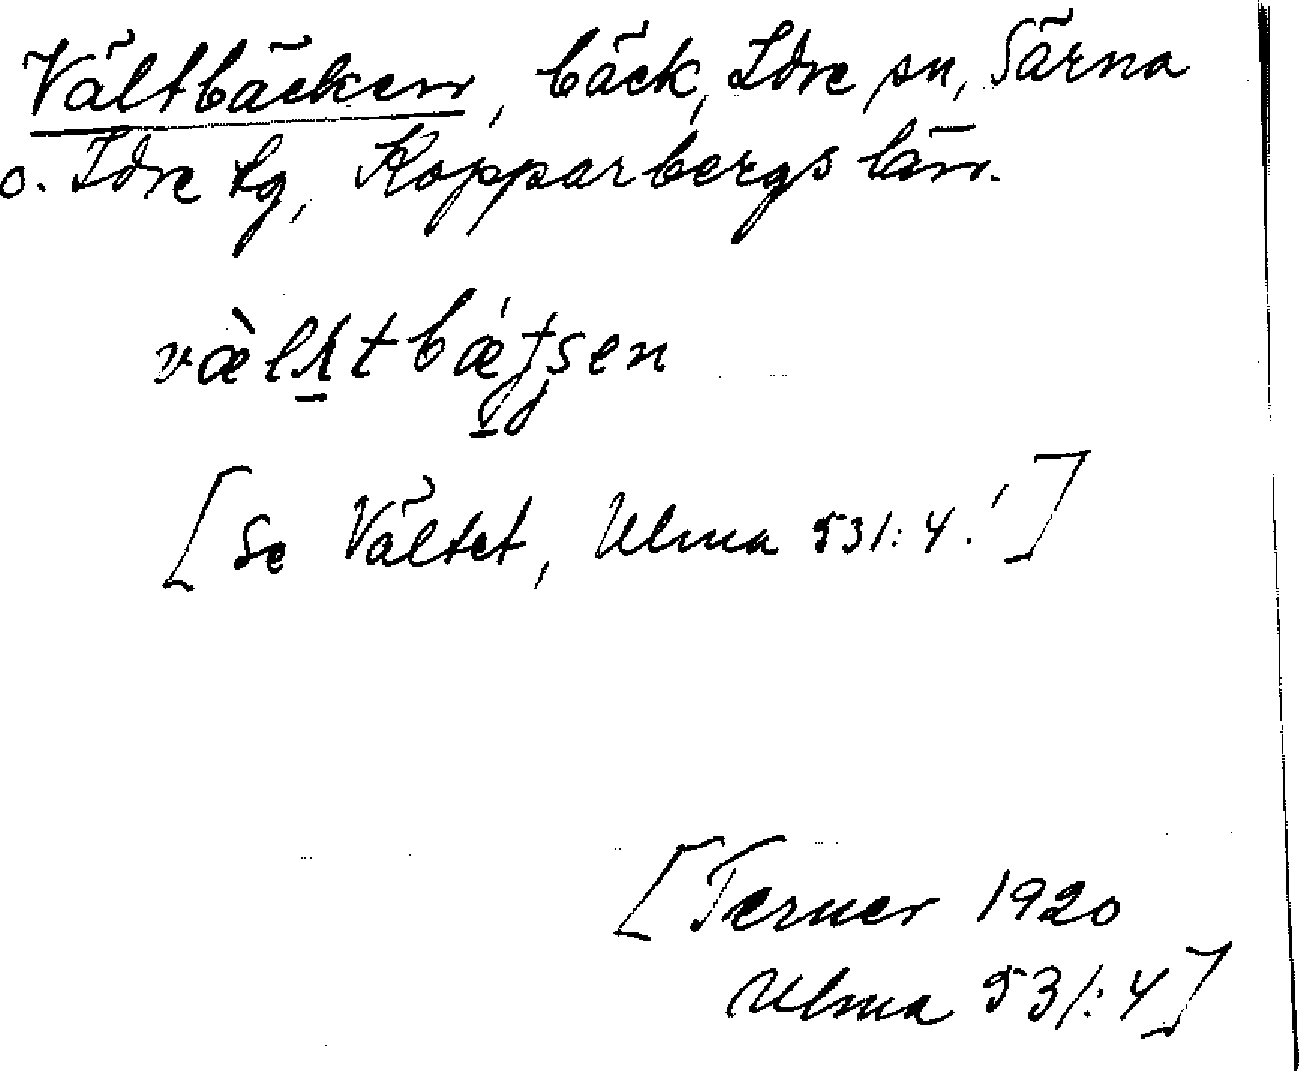 Vältbäcken, bäck, Idre sn, Särna
o. Idre tg, Kopparbergs län.
[Se Vältet, Ulma 531:4!]
[Ferner 1920
Ulma 531:4]